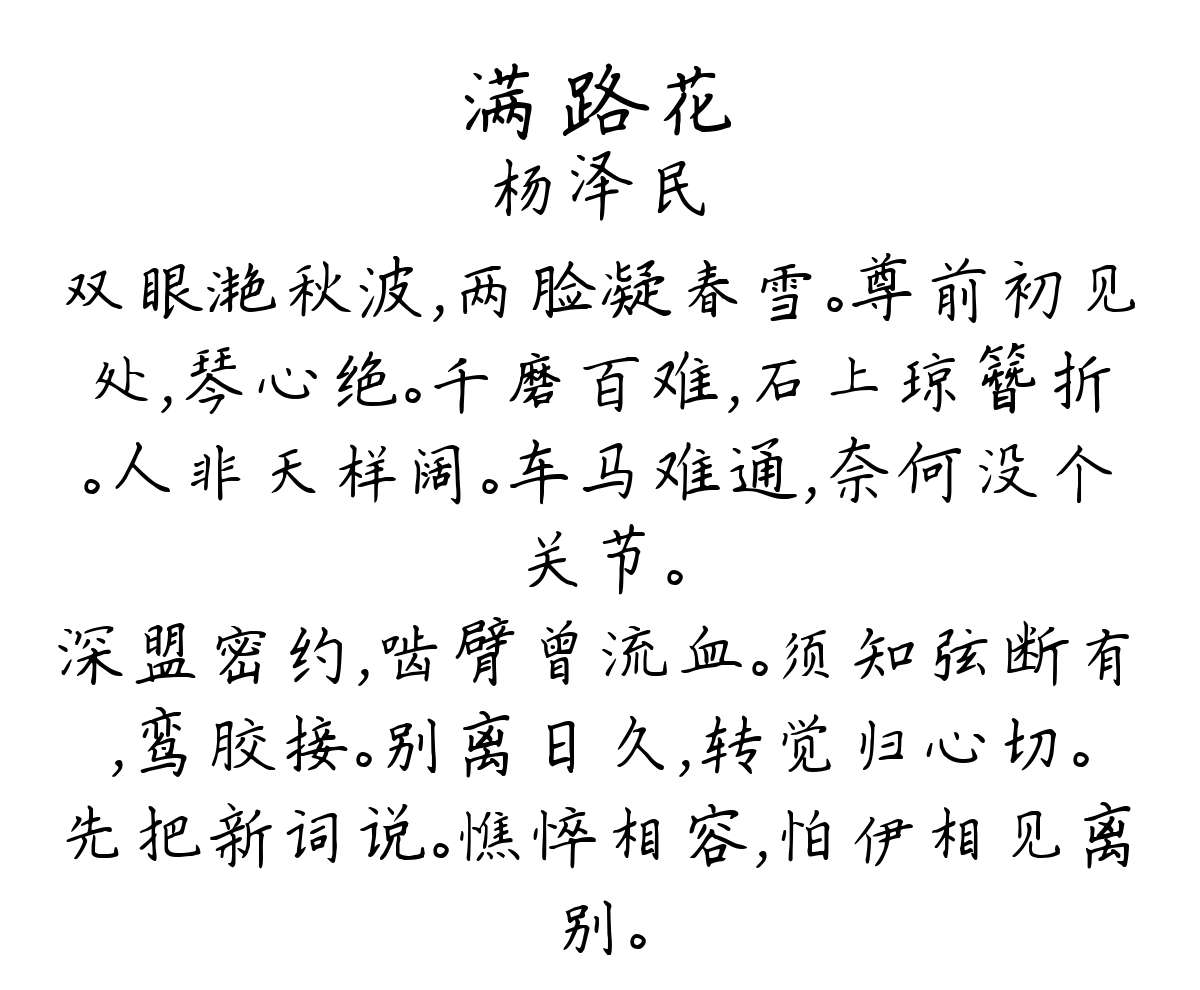 满路花
杨泽民
双眼滟秋波,两脸凝春雪。尊前初见
处,琴心绝。千磨百难,石上琼簪折
。人非天样阔。车马难通,奈何没个
关节。
深盟密约,啮臂曾流血。须知弦断有
,鸾胶接。别离日久,转觉归心切。
先把新词说。憔悴相容,怕伊相见离
别。